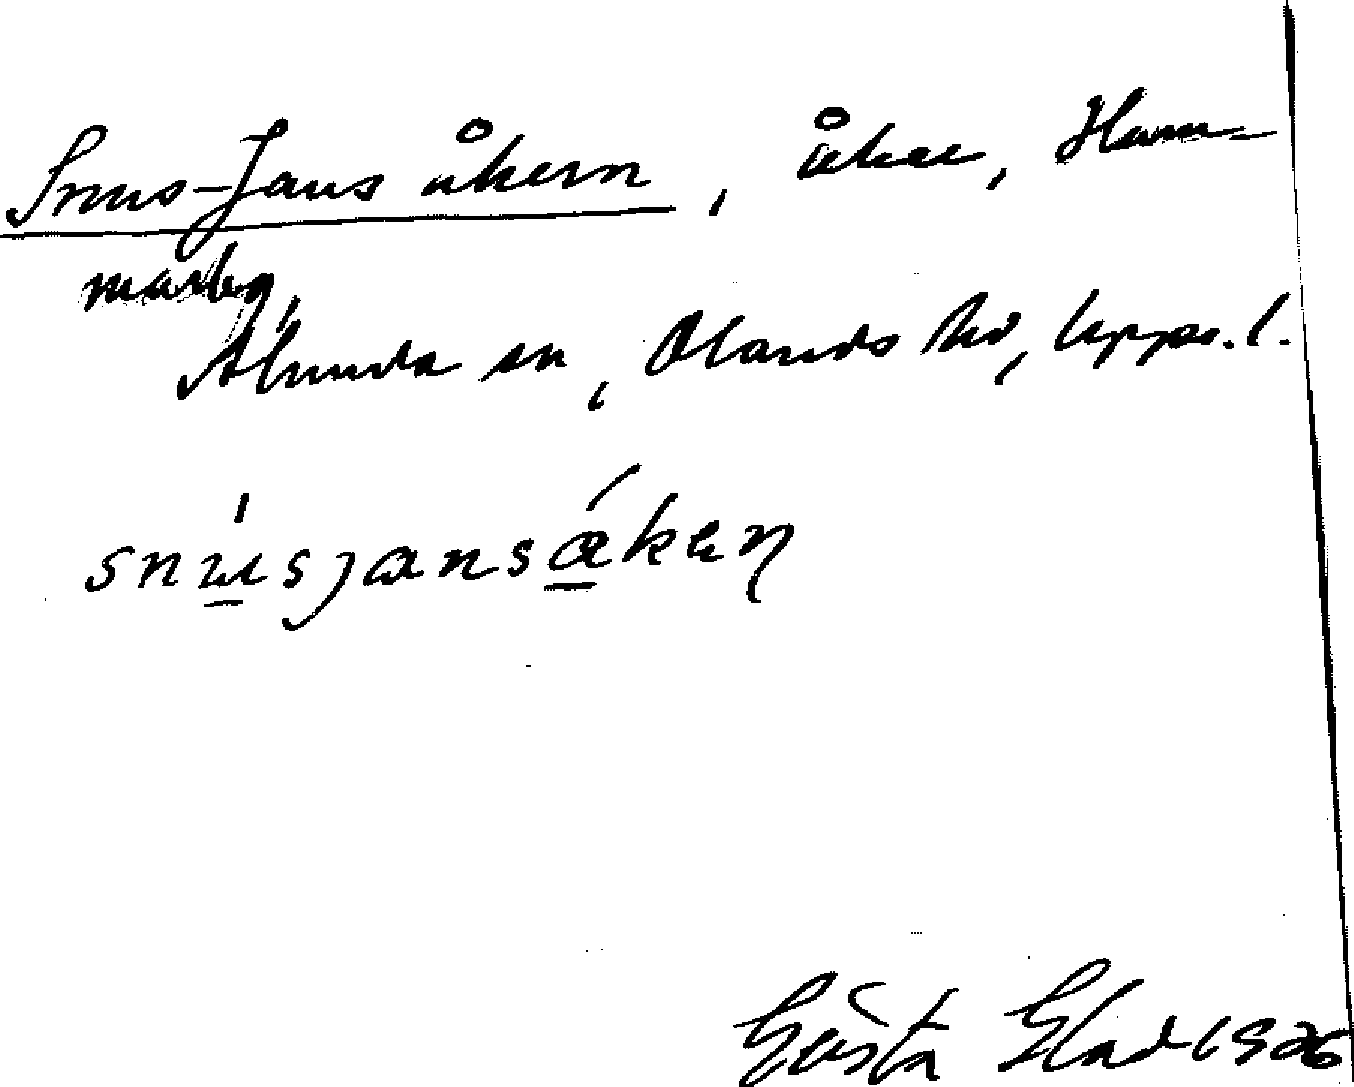 Snus-Jans åkern, åker, Ham-
marby,
Alunda sn, Olands hd, Upps. l.
snúsjansǽkaɳ
Gösta Elad 1926